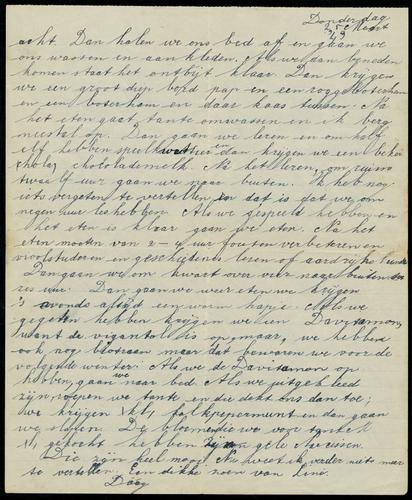 Donderdag
25 Maart
43
acht. Dan halen we ons bed af en gaan we
ons wassen en aankleeden. Als we dan beneden
komen staat het ontbijt klaar. Dan krijgen
we een groot diep bord pap en een rogge boterham
en een boterham en daar kaas tussen. Na
het eten gaat tante omwassen en ik berg
meestal op. Dan gaan we leren en om half
elf hebben we speelkwartier en dan krijgen we een beker
chocolademelk. Na het leren, om ruim
twaalf uur gaan we naar buiten. Ik heb nog
iets vergeten te vertellen en dat is dat we om
negen uur les hebben. Als we gespeeld hebben en
het eten is klaar gaan we eten. Na het
eten moeten we van 2 – 4 uur fouten verbeteren en
viool studeren en geschiedenis leren of aardrijks kunde
Dan gaan we om kwart over vier naar buiten tot
zes uur. Dan gaan we weer eten we krijgen
's avonds altijd een warm hapje. Als we
gegeten hebben krijgen we een Davitamon,
want de vigantol is op, maar, we hebben
ook nog maar dat bewaren we voor de
volgende winter. Als we de Davitamon op
hebben, gaan we naar bed. Als we uitgekleed
zijn, roepen we tante en die dekt ons dan toe;
we krijgen pepermunt en dan gaan
we slapen. De bloemen die we voor tante
gekocht hebben zijn gele Narcissen.
Die zijn heel mooi. Nu weet ik verder niets meer
te vertellen. Een dikke zoen van Liné.
Daag